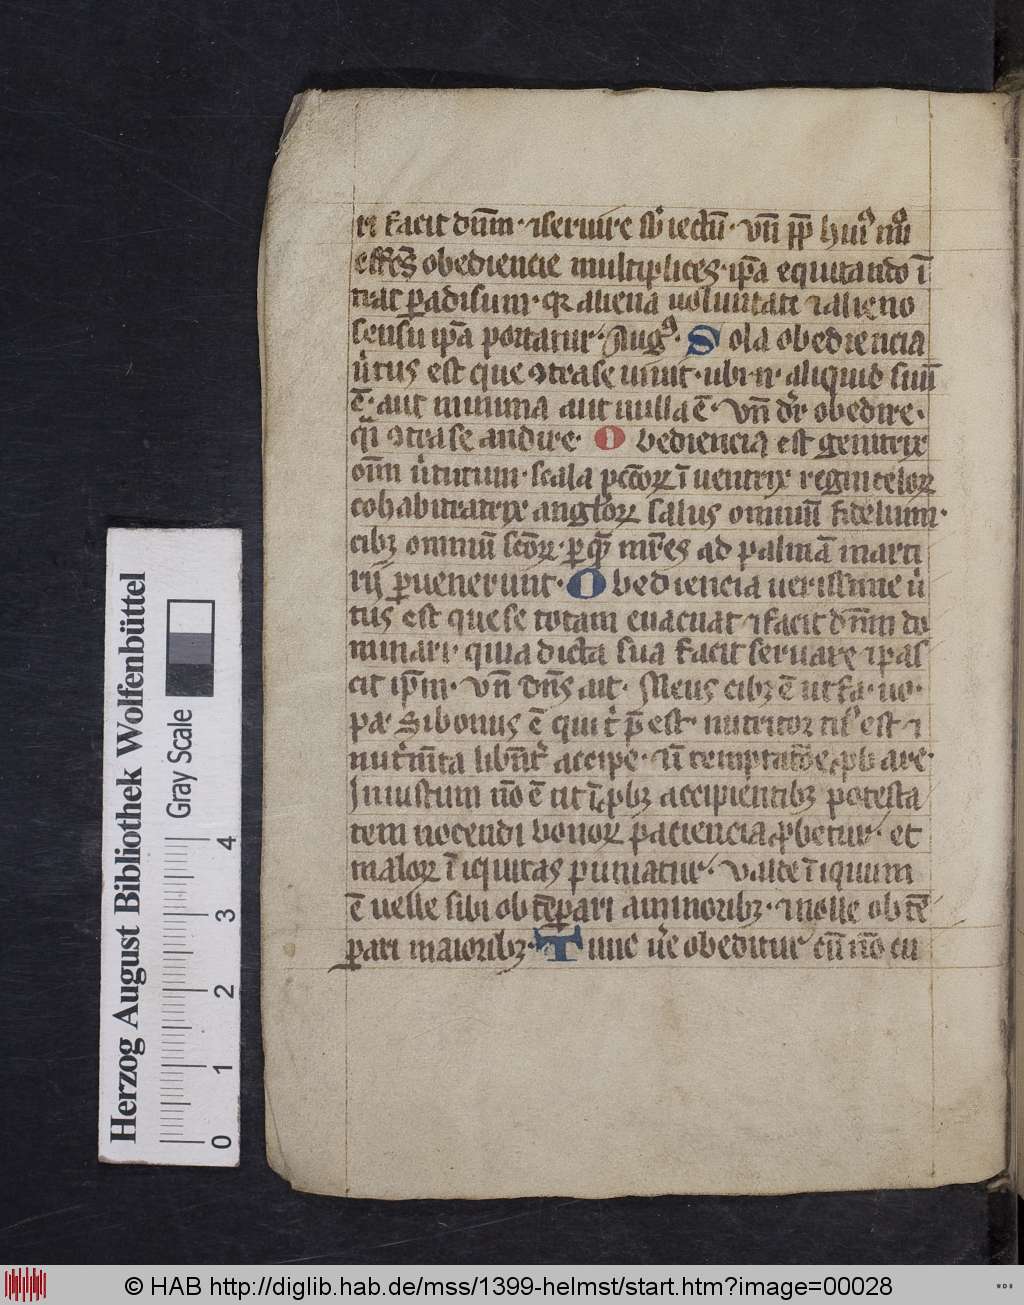 ri facit dn̄m· ⁊seruire sb̓iectū· vn̄ pp̄ hui᷒ mōi
effēs obediencie multiplices· ip̄a equitando ī
trat ꝑadisum· qꝛ aliena uoluntate ⁊alieno
sensu ip̄a portatur· Augꝰ· Sola obediencia
u̓tus est que ꝯtrase unuit· ubi n̄ aliquid suū
ē· aut minima aut nulla ē· vn̄ dr̄ obedire·
q̄i ꝯtra se audire· Obediencia est genitrix
om̄m u̓tutum· scala pc̄coꝝ īuentrix regni celoꝝ
cohabitatrix angl̓oꝝ salus omniū fidelium·
cibꝫ omniū sc̄oꝝ· ꝑ quā mr̄es ad palmā marti
rij ꝑuenerunt· Obediencia uerissime u̓
tus est que se totam euacuat ⁊facit dn̄m do
minari· quia dicta sua facit seruare ⁊ pas
cit ip̄m· vn̄ dn̄s ait· Meus cibꝫ ē ut fa· uo·
pa· Si bonus ē qui t̓ p̄est· nutritor tilꝰ est ⁊
nutr̓m̄ta libn̄t̓ accipe· Ii temptatōe ꝓbare·
Iniustum nō ē ut īꝓbꝫ accipientibꝫ potesta
tem nocendi bonoꝝ paciencia ꝓbetur· et
maloꝝ īiquitas puniatur· Valde īiquum
ē uelle sibi obtēꝑari aminoribꝫ· ⁊nolle obtē
ꝑari maioribꝫ· Tunc u̓e obeditur cū nō cu
Herzog August Bibliothek Wolfenbüttel
Gray Scale
0 1 2 3 4
© HAB http://diglib.hab.de/mss/1399-helmst/start.htm?image=00028